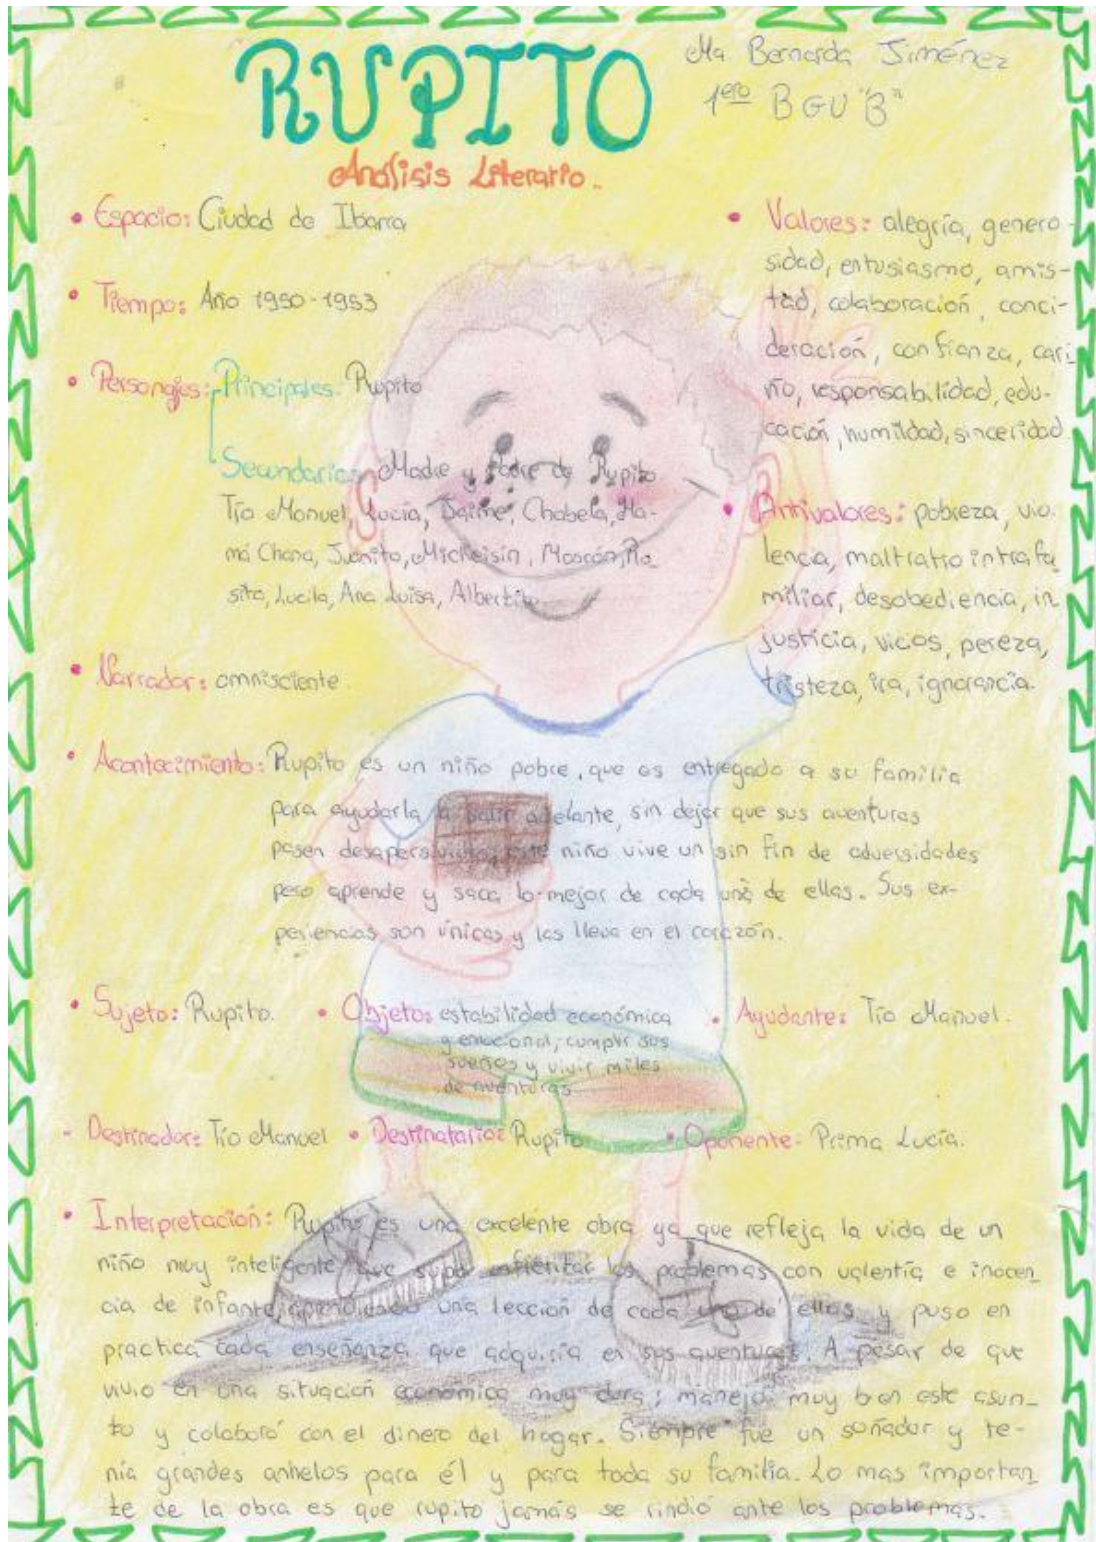 RUPITO
Ma Bernarda Jiménez
1ero BGU "B"
Análisis Literario..
• Espacio: Ciudad de Ibarra
• Tiempo: Año 1950-1953
• Personajes: Principales: Rupito
Secundarios: Madre y Padre de Rupito
Tío Manuel, Lucía, Jaime, Chabela, Ma-
má Chana, Juanito, Micheisin, Moscón, Ro-
sita, Lucila, Ana Luisa, Albertito
• Narrador: omnisciente.
• Valores: alegría, genero-
sidad, entusiasmo, amis-
tad, colaboración, conci-
deración, confianza, cari-
ño, responsabilidad, edu-
cación, humildad, sinceridad
• Antivalores: pobreza, vio
lencia, maltratro intrafa
miliar, desobediencia, in
justicia, vicios, pereza,
tristeza, ira, ignorancia.
• Acontecimiento: Rupito es un niño pobre, que es entregado a su familia
para ayudarla a salir adelante, sin dejar que sus aventuras
pasen desapersividas, este niño vive un sin fin de adversidades
pero aprende y saca lo mejor de cada una de ellas. Sus ex-
periencias son únicas y las lleva en el corazón.
• Sujeto: Rupito. • Objeto: estabilidad económica • Ayudante: Tío Manuel.
y emocional, cumplir sus
sueños y vivir miles
de aventuras
- Destinador: Tío Manuel • Destinatario: Rupito • Oponente: Prima Lucía.
• Interpretación: Rupito es una excelente obra ya que refleja la vida de un
niño muy inteligente que supo enfrentar los problemas con valentía e inocen
cia de infante, aprendiendo una lección de cada uno de ellos y puso en
practica cada enseñanza que adquiría en sus aventuras. A pesar de que
vivio en una situación económica muy dura; manejó muy bien este asun-
to y colaboró con el dinero del hogar. Siempre fue un soñador y te-
nía grandes anhelos para él y para toda su familia. Lo mas importan
te de la obra es que rupito jamás se rindió ante los problemas.